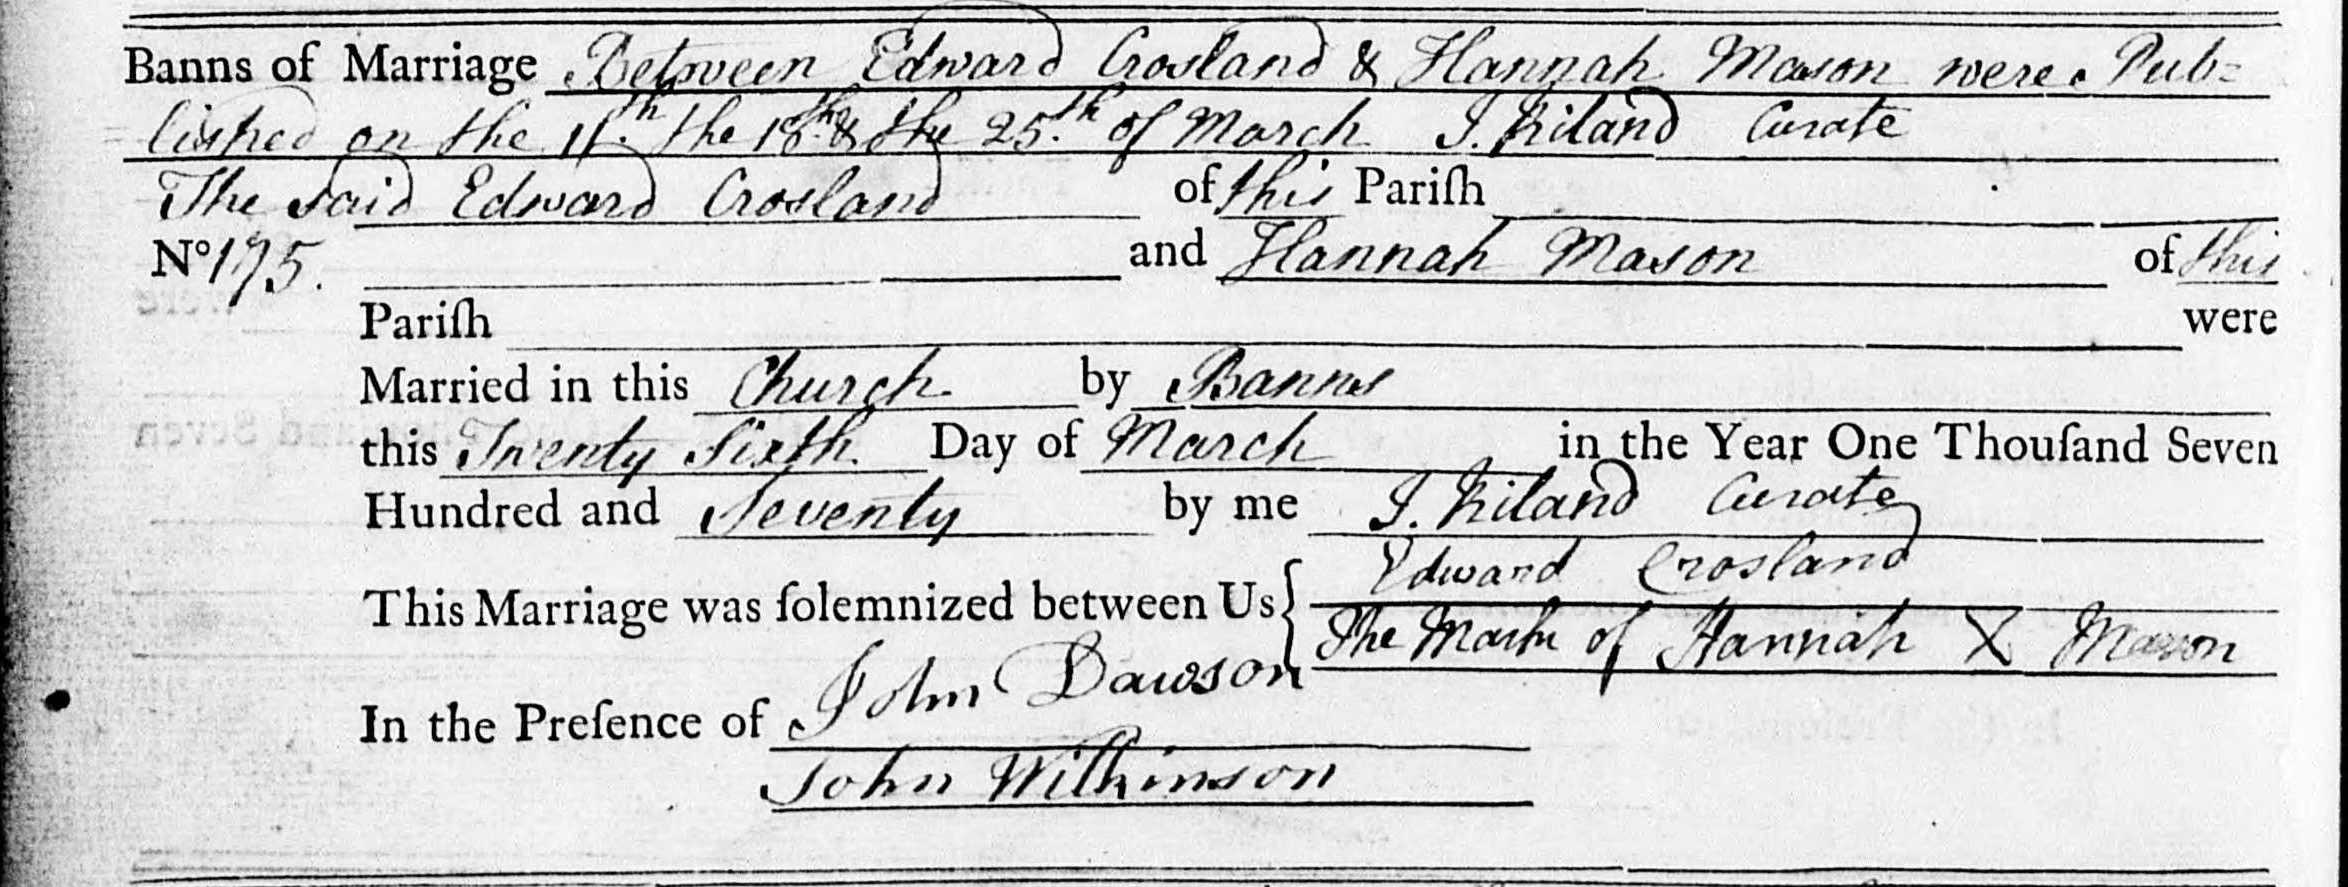 Banns of Marriage Between Edward Crosland & Hannah Mason were Pub=
lished on the 11.th the 18th & the 25.th of March J. Kiland Curate
The said Edward Crosland of this Pariſh
No 175. and Hannah Mason of this
Pariſh were
Married in this Church by Banns
this Twenty Sixth Day of March in the Year One Thouſand Seven
Hundred and Seventy by me J. Kiland Curate
This Marriage was ſolemnized between Us { Edward Crosland
The Mark of Hannah X Mason
In the Preſence of John Dawson
John Wilkinson